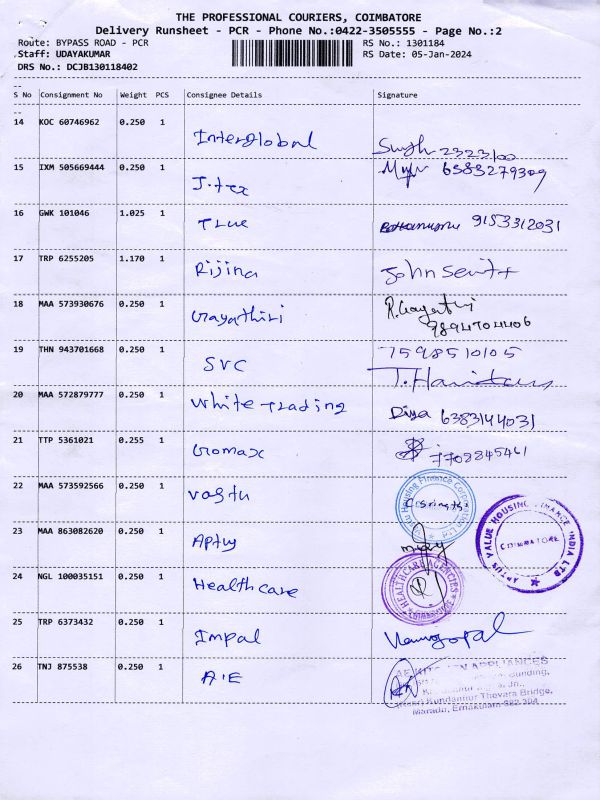 THE PROFESSIONAL COURIERS, COIMBATORE
Delivery Runsheet - PCR - Phone No.:0422-3505555 - Page No.:2
Route: BYPASS ROAD - PCR RS No.: 1301184
Staff: UDAYAKUMAR RS Date: 05-Jan-2024
DRS No.: DCJB130118402
S No Consignment No Weight PCS Consignee Details Signature
14 KOC 60746962 0.250 1 Interglobal
15 IXM 505669444 0.250 1 J.tex
16 GWK 101046 1.025 1 TLUE 9153312031
17 TRP 6255205 1.170 1 Rijina John
18 MAA 573930676 0.250 1 Gayathiri R.Gayathri
19 THN 943701668 0.250 1 SVC 7598510105
20 MAA 572879777 0.250 1 White Trading Diya 6383144031
21 TTP 5361021 0.255 1 Gomax 7708845461
22 MAA 573592566 0.250 1 Vastu
Housing Finance Corporation
23 MAA 863082620 0.250 1 Aptus
APTUS VALUE HOUSING FINANCE INDIA LTD
COIMBATORE
24 NGL 100035151 0.250 1 Healthcare
HEALTHCARE AGENCIES
25 TRP 6373432 0.250 1 Impal Venugopal
26 TNJ 875538 0.250 1 A.E
APPLIANCES
Kundannur Thevara Bridge,
Maradu, Ernakulam-682 304